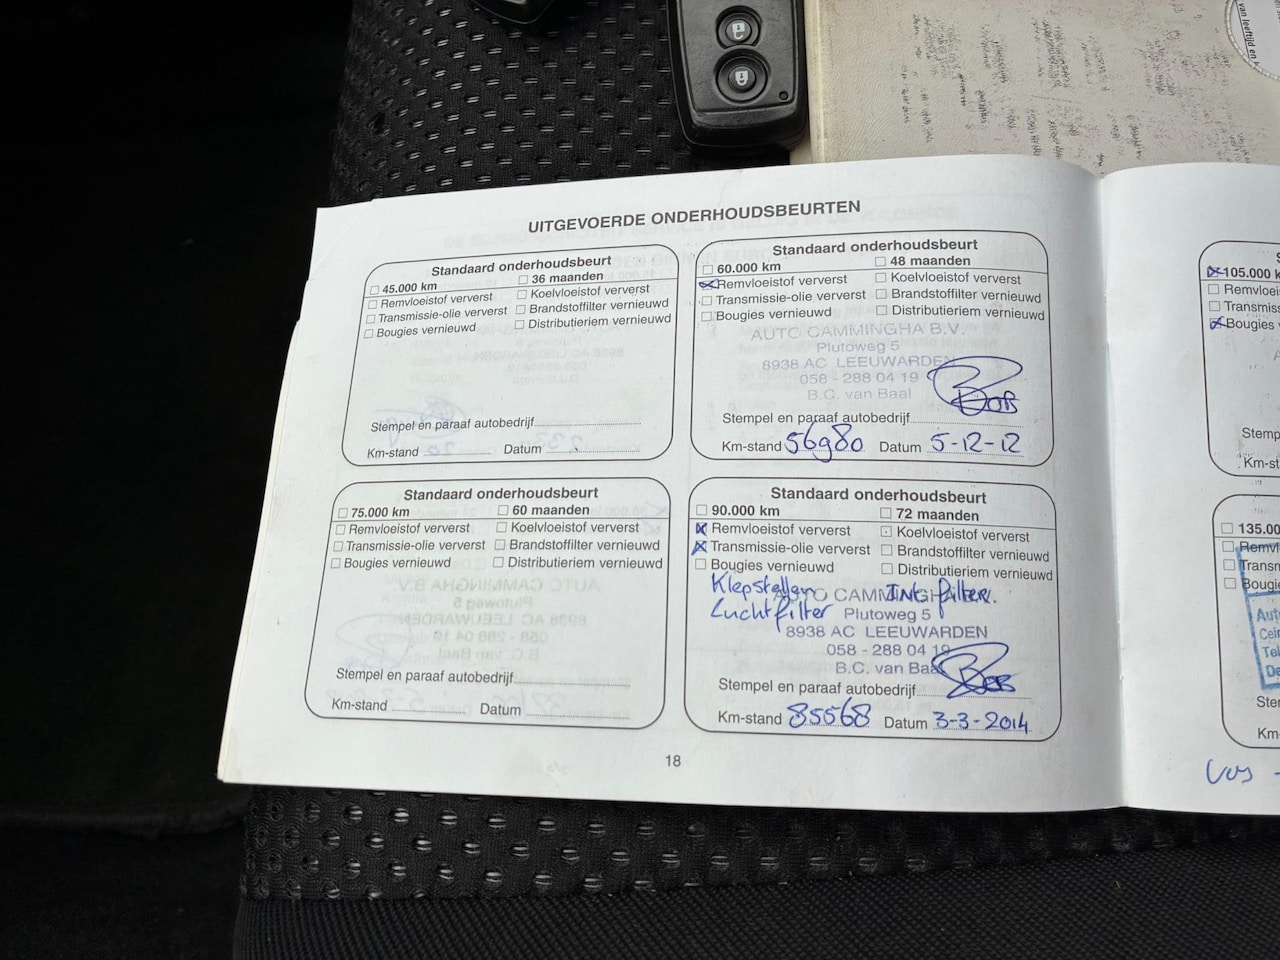 van leeftijd en
UITGEVOERDE ONDERHOUDSBEURTEN
Standaard onderhoudsbeurt
☐ 45.000 km ☐ 36 maanden
☐ Remvloeistof ververst ☐ Koelvloeistof ververst
☐ Transmissie-olie ververst ☐ Brandstoffilter vernieuwd
☐ Bougies vernieuwd ☐ Distributieriem vernieuwd
Stempel en paraaf autobedrijf
Km-stand Datum
Standaard onderhoudsbeurt
☐ 60.000 km ☐ 48 maanden
☒ Remvloeistof ververst ☐ Koelvloeistof ververst
☐ Transmissie-olie ververst ☐ Brandstoffilter vernieuwd
☐ Bougies vernieuwd ☐ Distributieriem vernieuwd
AUTO CAMMINGHA B.V.
Plutoweg 5
8938 AC LEEUWARDEN
058 - 288 04 19
B.C. van Baal
Stempel en paraaf autobedrijf
Km-stand 56980 Datum 5-12-12
Standaard onderhoudsbeurt
☐ 75.000 km ☐ 60 maanden
☐ Remvloeistof ververst ☐ Koelvloeistof ververst
☐ Transmissie-olie ververst ☐ Brandstoffilter vernieuwd
☐ Bougies vernieuwd ☐ Distributieriem vernieuwd
Stempel en paraaf autobedrijf
Km-stand Datum
Standaard onderhoudsbeurt
☐ 90.000 km ☐ 72 maanden
☒ Remvloeistof ververst ☐ Koelvloeistof ververst
☒ Transmissie-olie ververst ☐ Brandstoffilter vernieuwd
☐ Bougies vernieuwd ☐ Distributieriem vernieuwd
Klepstellen Int filter.
Luchtfilter
AUTO CAMMINGHA B.V.
Plutoweg 5
8938 AC LEEUWARDEN
058 - 288 04 19
B.C. van Baal
Stempel en paraaf autobedrijf
Km-stand 85568 Datum 3-3-2014
18
☒ 105.000 k
☐ Remvloeis
☐ Transmis
☒ Bougies
Stemp
Km-st
☐ 135.00
☐ Remvl
☐ Transn
☐ Bougi
Auto
Cein
Tel
De
Ster
Km-